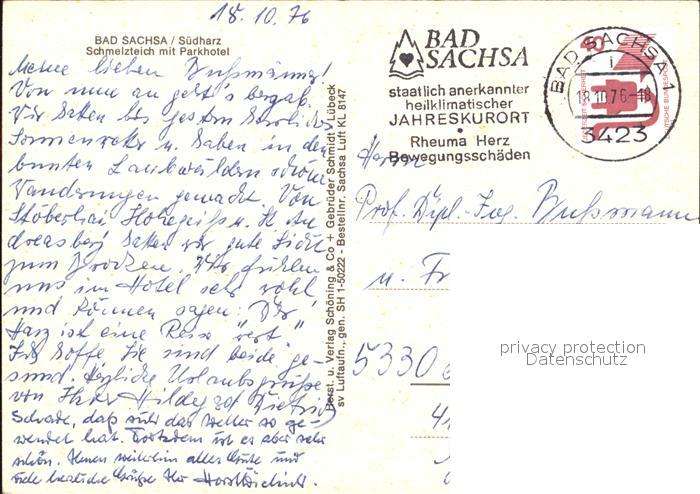 18.10.76
BAD SACHSA / Südharz
Schmelzteich mit Parkhotel
Meine lieben Bußmänner!
Von nun an geht's bergab.
Wir hatten bis gestern herrliches
Sonnenwetter u. haben in den
bunten Laubwäldern schöne
Wanderungen gemacht. Von
Stöberhai, Hohegeiß u. St. An
dreasberg hatten wir gute Sicht
zum Brocken. Wir fühlen
uns im Hotel sehr wohl
und können sagen: Der
Harz ist eine Reise "wert".
Ich hoffe, Sie sind beide ge-
sund. Herzliche Urlaubsgrüße
von Ihrer Hildegard
Schade, daß sich das Wetter so ge-
wendet hat. Trotzdem ist es aber sehr
schön. Ihnen weiterhin alles Gute und
viele herzliche Grüße Ihr
Horst. u. Verlag Schöning & Co + Gebrüder Schmidt, Lübeck
sv Luftaufn... gen. SH 1-50222 - Bestellnr. Sachsa Luft KL 8147
BAD
SACHSA
staatlich anerkannter
heilklimatischer
JAHRESKURORT
•
Rheuma Herz
Bewegungsschäden
BAD SACHSA 1
i
18.10.76-18
3423
40
DEUTSCHE BUNDESPOST
Herrn
Prof. Dipl.-Ing. Bußmann
u. Fr
5330
privacy protection
Datenschutz